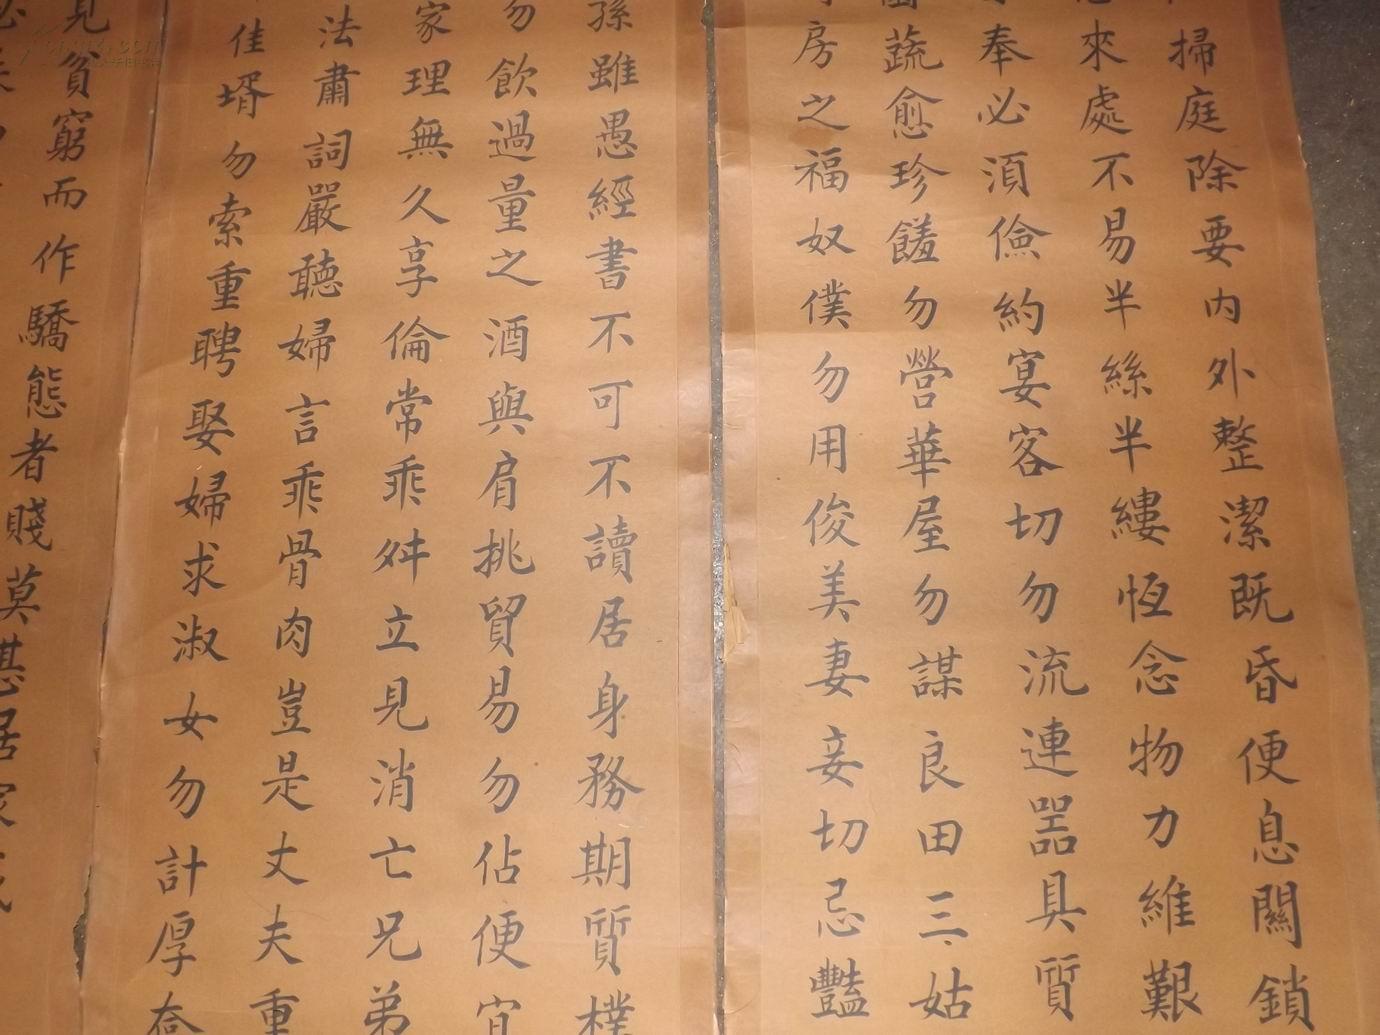 掃庭除要內外整潔既昏便息關鎖
來處不易半絲半縷恆念物力維艱
奉必須儉約宴客切勿流連器具質
蔬愈珍饈勿營華屋勿謀良田三姑
房之福奴僕勿用俊美妻妾切忌豔
孫雖愚經書不可不讀居身務期質樸
勿飲過量之酒與肩挑貿易勿佔便宜
家理無久享倫常乖舛立見消亡兄弟
法肅詞嚴聽婦言乖骨肉豈是丈夫重
佳壻勿索重聘娶婦求淑女勿計厚奩
見貧窮而作驕態者賤莫甚居家戒